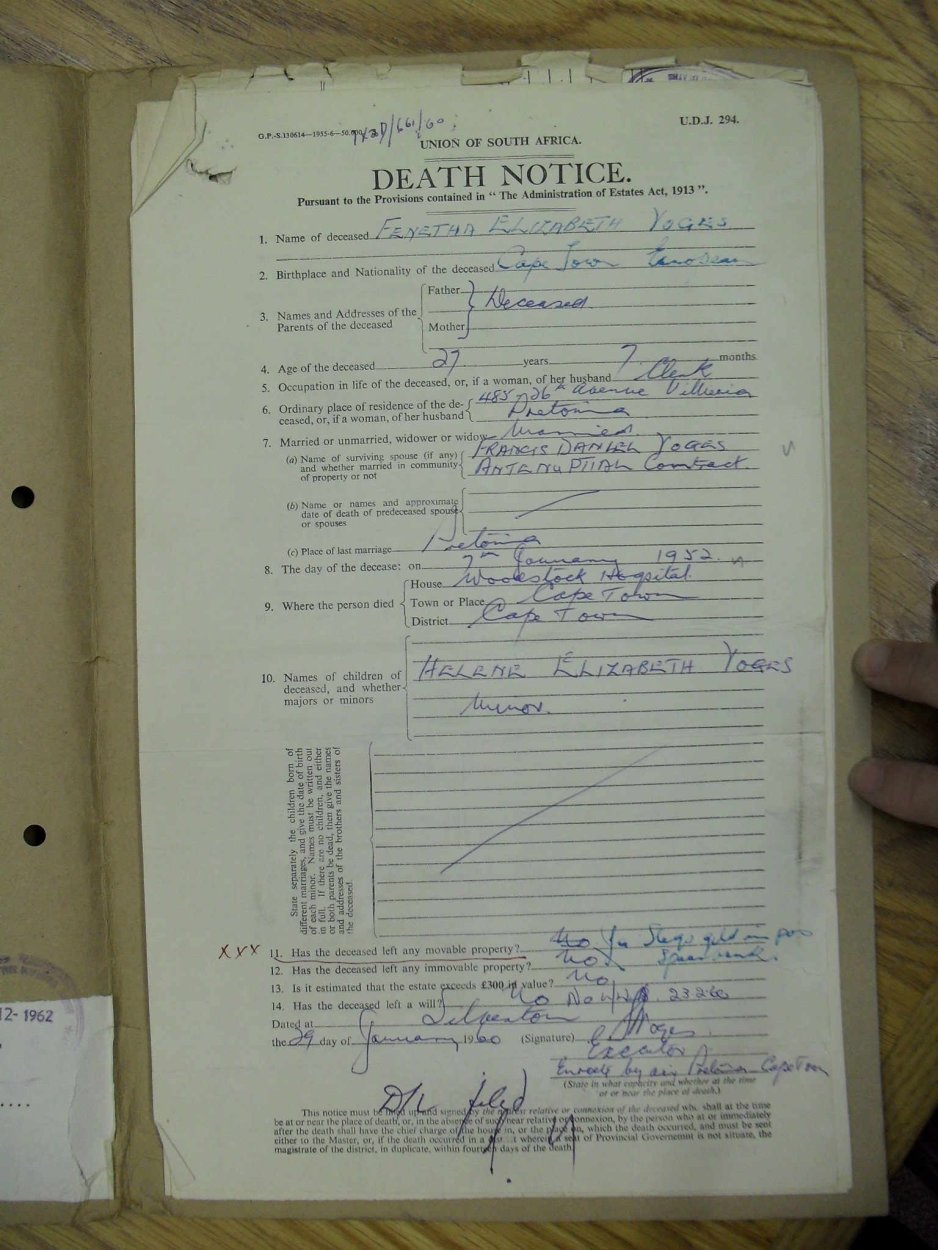 G.P.-S.130614—1955-6—50,000
U.D.J. 294.
UNION OF SOUTH AFRICA.
DEATH NOTICE.
Pursuant to the Provisions contained in “ The Administration of Estates Act, 1913 ”.
1. Name of deceased FENETHA ELIZABETH VOGES
2. Birthplace and Nationality of the deceased Cape Town European
3. Names and Addresses of the Parents of the deceased
Father
Deceased
Mother
4. Age of the deceased 27 years 7 months
5. Occupation in life of the deceased, or, if a woman, of her husband Clerk
6. Ordinary place of residence of the de-
ceased, or, if a woman, of her husband
485 - 26th Avenue Villieria
Pretoria
7. Married or unmarried, widower or widow Married
(a) Name of surviving spouse (if any)
and whether married in community
of property or not
FRANCIS DANIEL VOGES
ANTENUPTIAL Contract
(b) Name or names and approximate
date of death of predeceased spouse
or spouses
(c) Place of last marriage Pretoria
8. The day of the decease: on 7th January 1952
9. Where the person died
House Woodstock Hospital
Town or Place Cape Town
District Cape Town
10. Names of children of
deceased, and whether
majors or minors
HELENE ELIZABETH VOGES
Minor.
State separately the children born of
different marriages, and give the date of birth
of each minor. Names must be written out
in full. If there are no children, and either
or both parents be dead, then give the names
and addresses of the brothers and sisters of
the deceased.
xxx 11. Has the deceased left any movable property? No
12. Has the deceased left any immovable property? No
13. Is it estimated that the estate exceeds £300 in value? No
14. Has the deceased left a will? No
Dated at Silverton
the 29 day of January 1960 (Signature) Voges
Executor
Enroute by air Pretoria - Cape Town
(State in what capacity and whether at the time
or at or near the place of death.)
filed
This notice must be filled up and signed by the nearest relative or connexion of the deceased who shall at the time
be at or near the place of death, or, in the absence of such near relative or connexion, by the person who at or immediately
after the death shall have the chief charge of the house in, or the place on, which the death occurred, and must be sent
either to the Master, or, if the death occurred in a wherein a seat of Provincial Government is not situate, the
magistrate of the district, in duplicate, within fourteen days of the death.
12- 1962